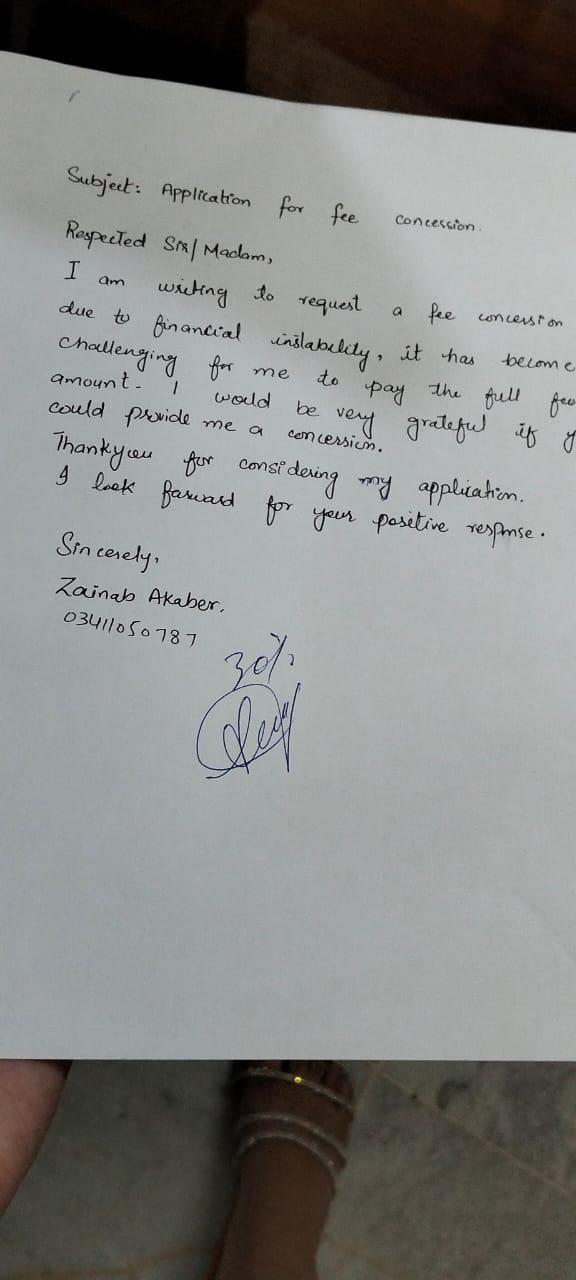 Subject: Application for fee concession.
Respected Sir/Madam,
I am writing to request a fee concession
due to financial instability, it has become
challenging for me to pay the full fee
amount. I would be very grateful if y
could provide me a concession.
Thankyou for considering my application.
I look forward for your positive response.
Sincerely,
Zainab Akaber.
03411050787
30%